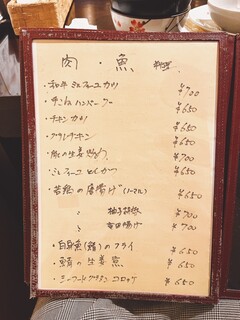 肉・魚 料理
・和牛ミルフィーユカツ ¥700
・手ごねハンバーグ ¥650
・チキンカツ ¥650
・フライドチキン ¥650
・豚の生姜焼 ¥700
・ミルフィーユとんかつ ¥650
・若鶏の唐揚げ(ノーマル) ¥650
〃 柚子胡椒 ¥700
〃 竜田揚げ ¥700
・白身魚(鱈)のフライ ¥650
・鯖の生姜煮 ¥650
・シーフードグラタンコロッケ ¥650